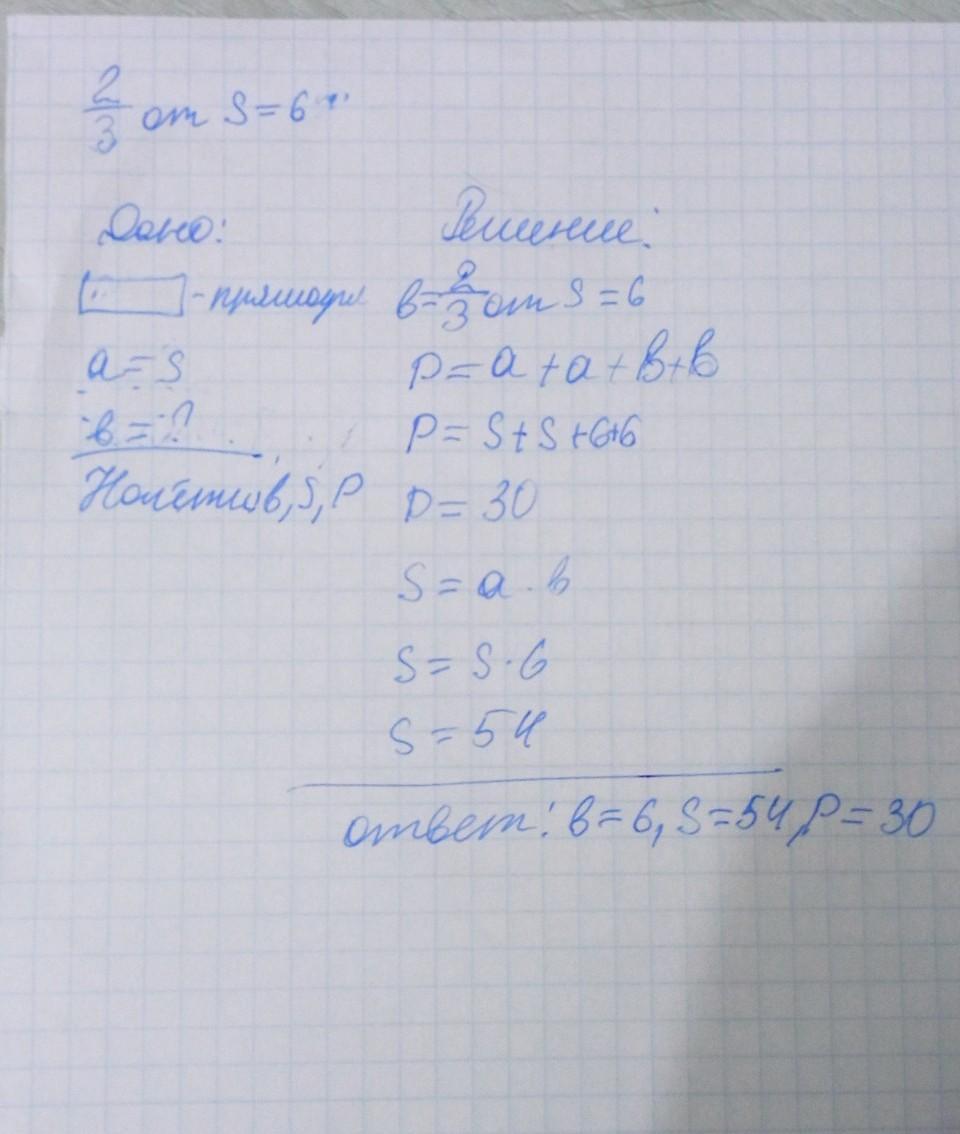 2/3 от 9 = 6
Дано: Решение:
- прямоуг в = 2/3 от 9 = 6
а = 9 P = а + а + в + в
в = ? P = 9 + 9 + 6 + 6
в, S, P P = 30
S = а · в
S = 9 · 6
S = 54
ответ: в = 6, S = 54, P = 30